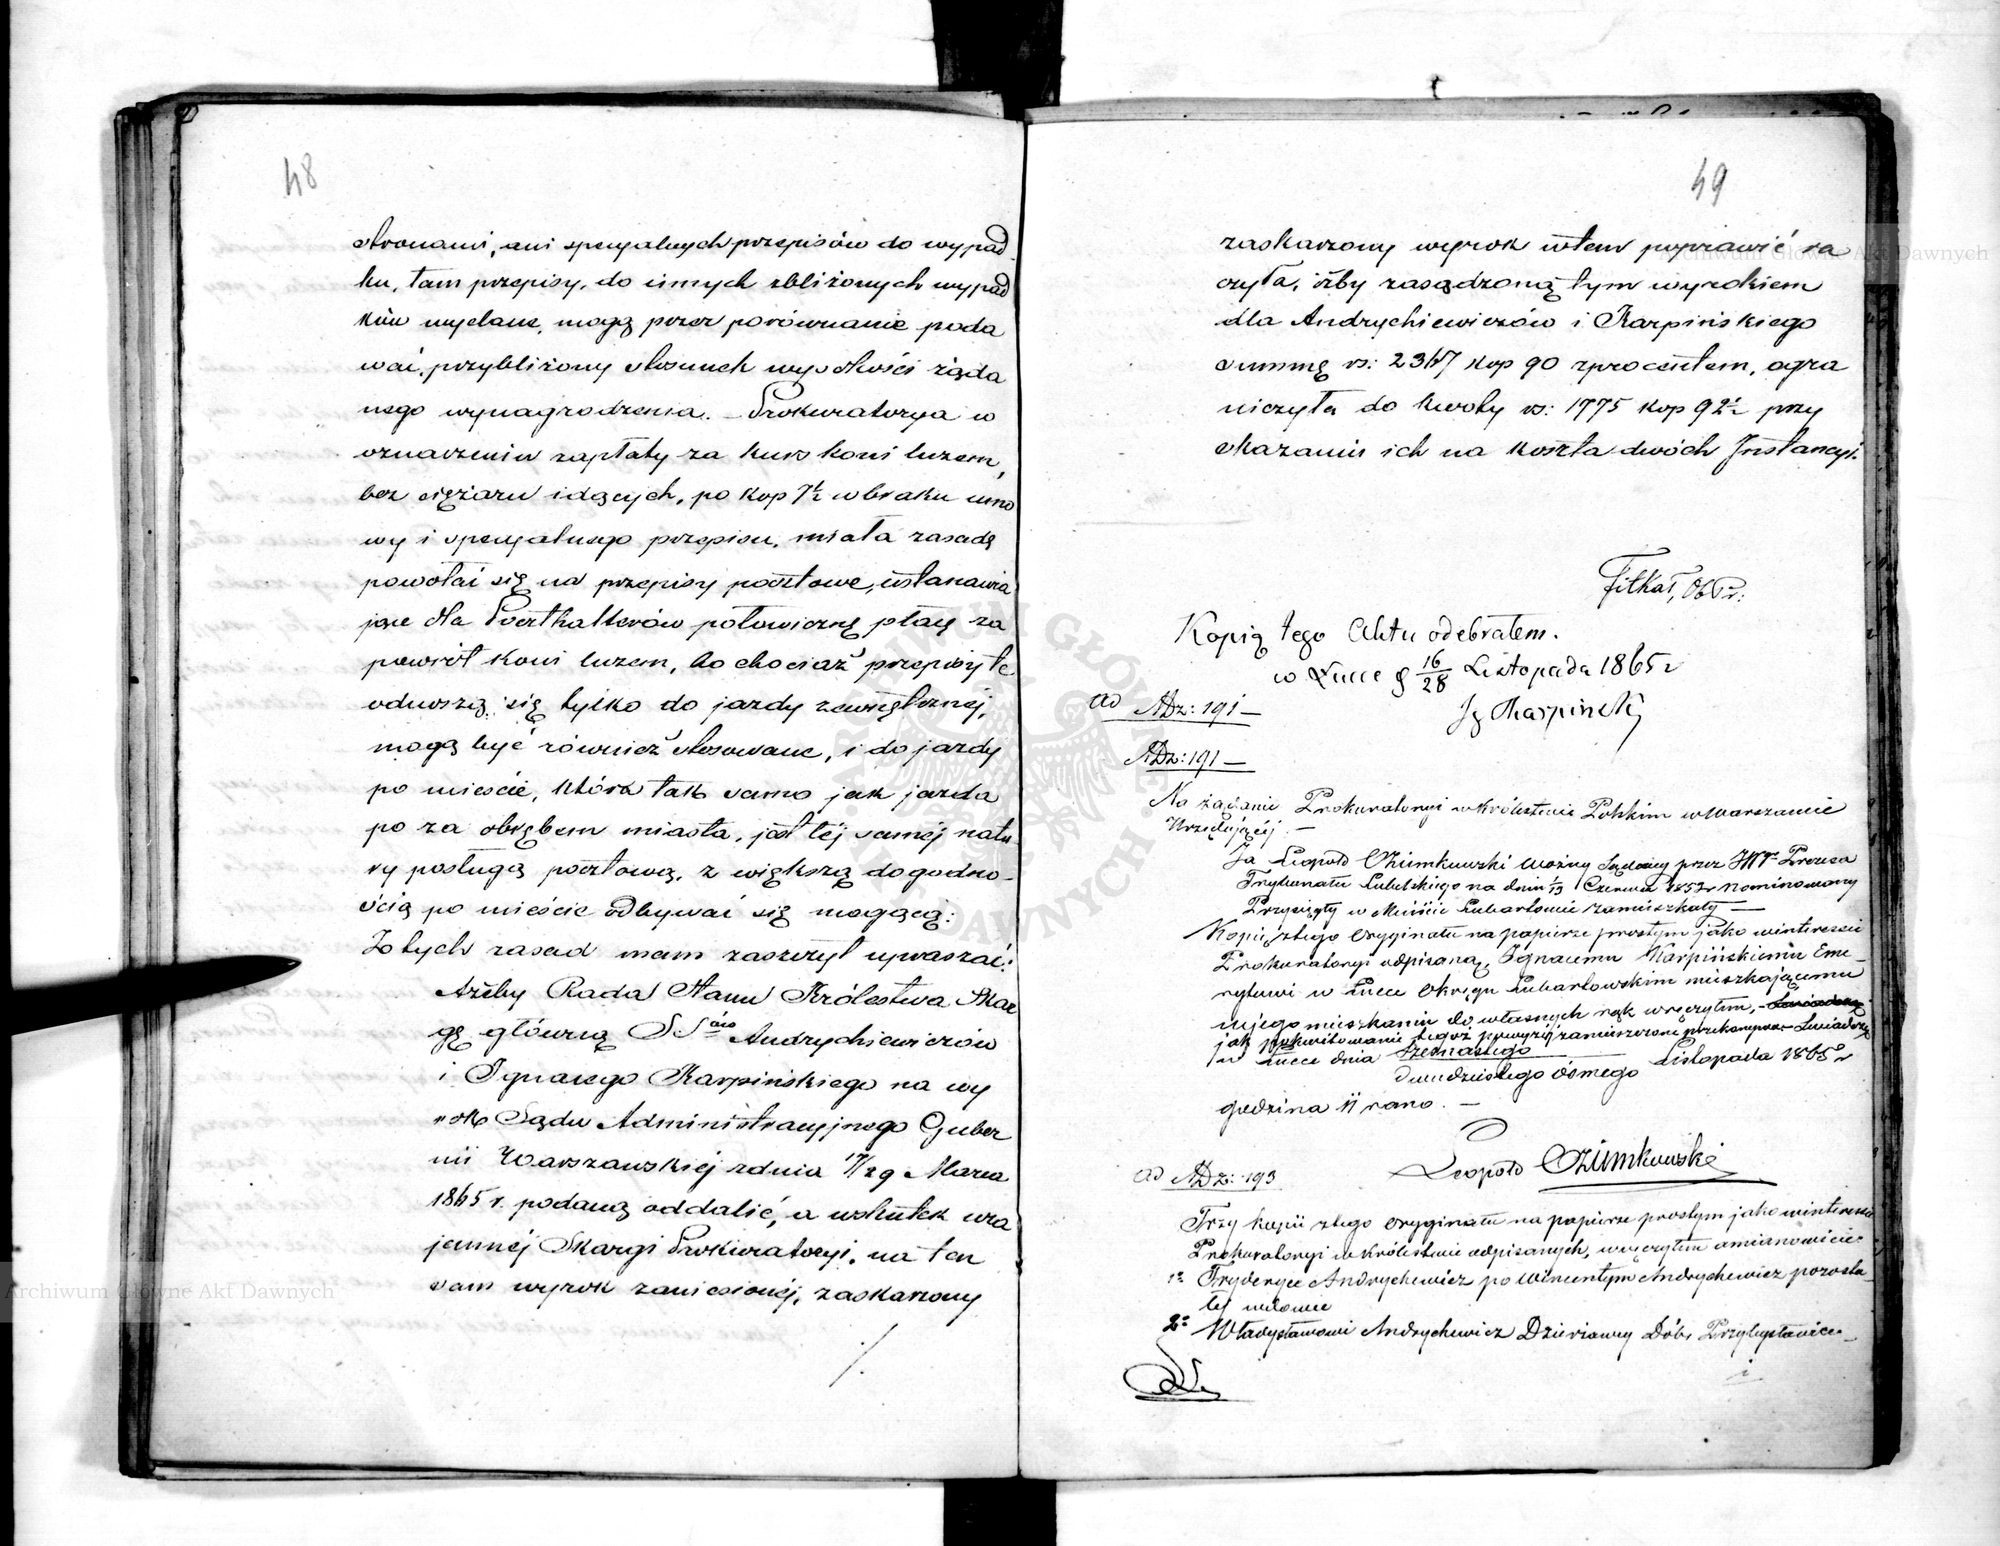 48
stronami, ani specyalnych przepisów do wypad
ku, tam przepisy, do innych zbliżonych wypad
ków wydane, mogą przez porównanie poda
wać przybliżony stosunek wysokości żąda
nego wynagrodzenia. Prokuratorya w
oznaczeniu zapłaty za kurs koni luzem,
bez ciężaru idących, po kop 7½ w braku umo
wy i specyalnego przepisu, miała zasadę
powołać się na przepisy pocztowe, ustanawia
jące dla Poczthalterów połowiczną płacę za
powrót koni luzem, bo chociaż przepisy te
odnoszą się tylko do jazdy zewnętrznej,
mogą być również stosowane, i do jazdy
po mieście, która tak samo jak jazda
po za obrębem miasta, jest téj saméj natu
ry posługą pocztową, z większą dogodno-
ścią po mieście odbywać się mogącą:
Z tych zasad mam zaszczyt upraszać:
Ażeby Rada Stanu Królestwa Skar
gę główną SSów Andrychiewiczów
i Ignacego Karpińskiego na wy
rok Sądu Administracyjnego Guber
nii Warszawskiéj z dnia 17/29 Marca
1865 r. podaną oddalić, a wskutek wza
jemnéj Skargi Prokuratoryi, na ten
sam wyrok zaniesionéj, zaskarzony
49
zaskarzony wyrok w tem poprawić ra
czyła, iżby zasądzoną tym wyrokiem
dla Andrychiewiczów i Karpińskiego
summę rs: 2367 kop 90 z procentem, ogra
niczyła do kwoty rs: 1775 kop 92½ przy
skazaniu ich na koszta dwóch Instancyi.
Kopią tego Aktu odebrałem.
w Łucce d 16/28 Listopada 1865 r
Ig Karpiński
ad NDz: 191 —
NDz: 191 —
Na żądanie Prokuratoryi w Królestwie Polskim w Warszawie
Urzędującéj. —
Ja Leopold Oziemkowski Woźny Sądowy przez JWo Prezesa
Trybunału Lubelskiego na dniu 1/13 Czerwca 1852 r nominowany
Przysięgły w Mieście Lubartowie zamieszkały —
Kopię z tego oryginału na papierze prostym jako w interessie
Prokuratoryi odpisaną, Ignacemu Karpińskiemu Eme-
rytowi w Łucce Okręgu Lubartowskim mieszkającemu
w jego mieszkaniu do własnych rąk wręczyłem,
jak pokwitowanie tegoż powyżéj zamieszczone przekonywa – Świadczę
w Łucce dnia Szesnastego Listopada 1865 r
dwudziestego ósmego
godzina 11 rano. —
Leopold Oziemkowski
ad NDz: 193
Trzy kopii z tego oryginału na papierze prostym jako w interessie
Prokuratoryi w Królestwie odpisanych, wręczyłem a mianowicie:
1o Fryderyce Andrychewicz po Wincentym Andrychewicz pozosta
łéj wdowie
2o Władysławowi Andrychewicz Dzierżawcy Dóbr Przybysławice
i
Archiwum Główne Akt Dawnych
Archiwum Główne Akt Dawnych
ARCHIWUM GŁÓWNE AKT DAWNYCH